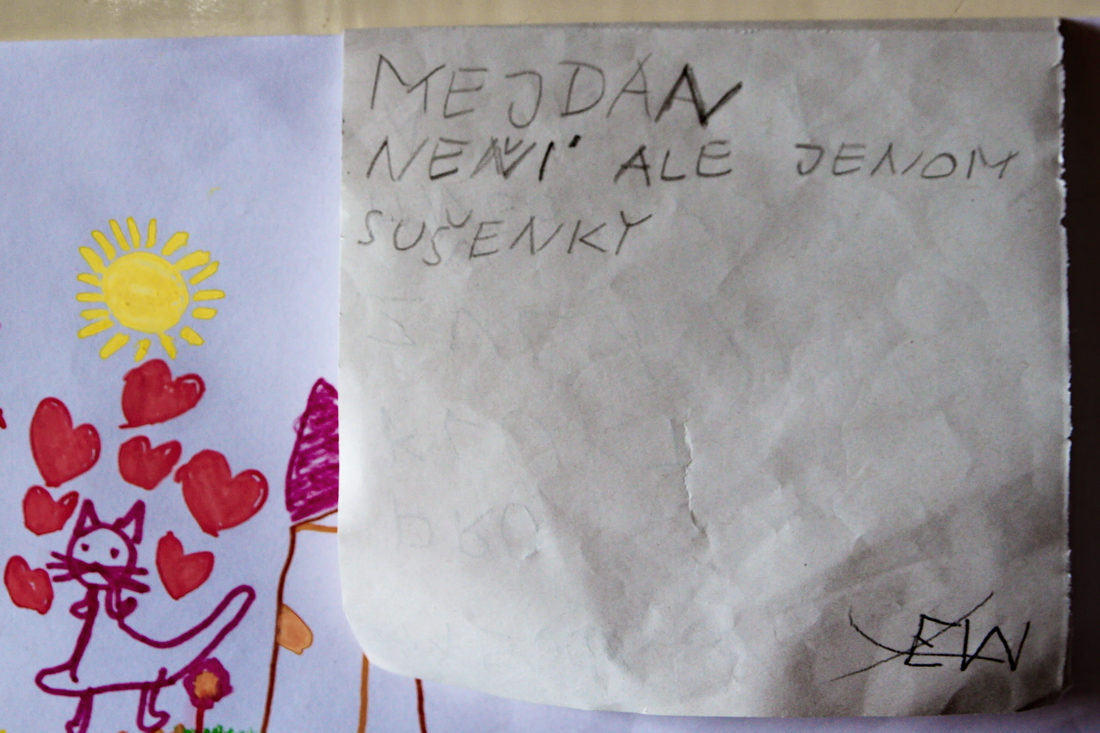 MEJDÁN
NENÍ ALE JENOM
SUŠENKY